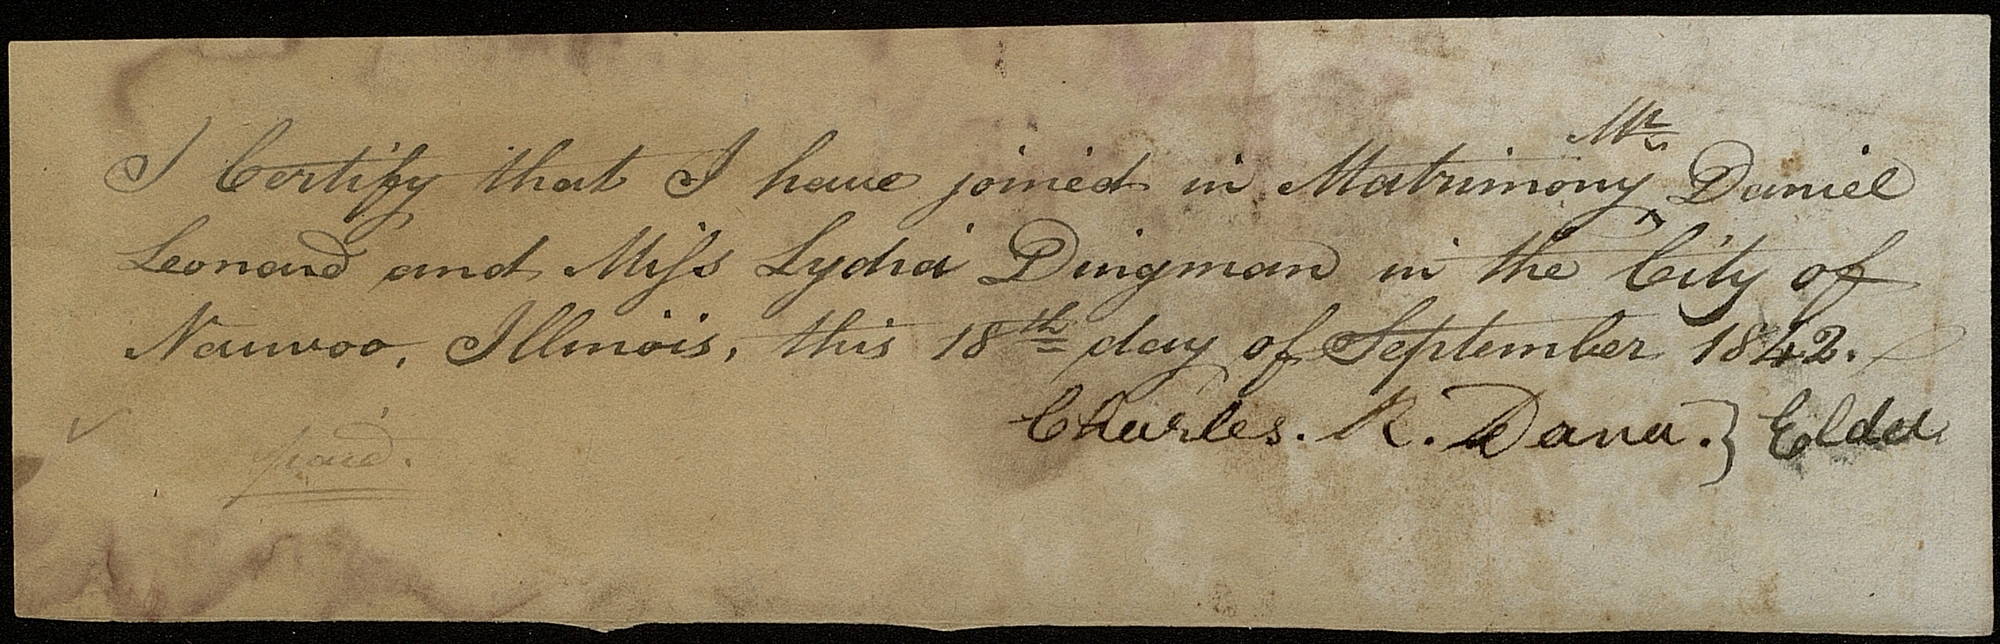 I Certify that I have joined in Matrimony ^Mr. Daniel
Leonard and Miſs Lydia Dingman in the City of
Nauvoo, Illinois, this 18th day of September 1842.
Charles. R. Dana. } Elder
paid.